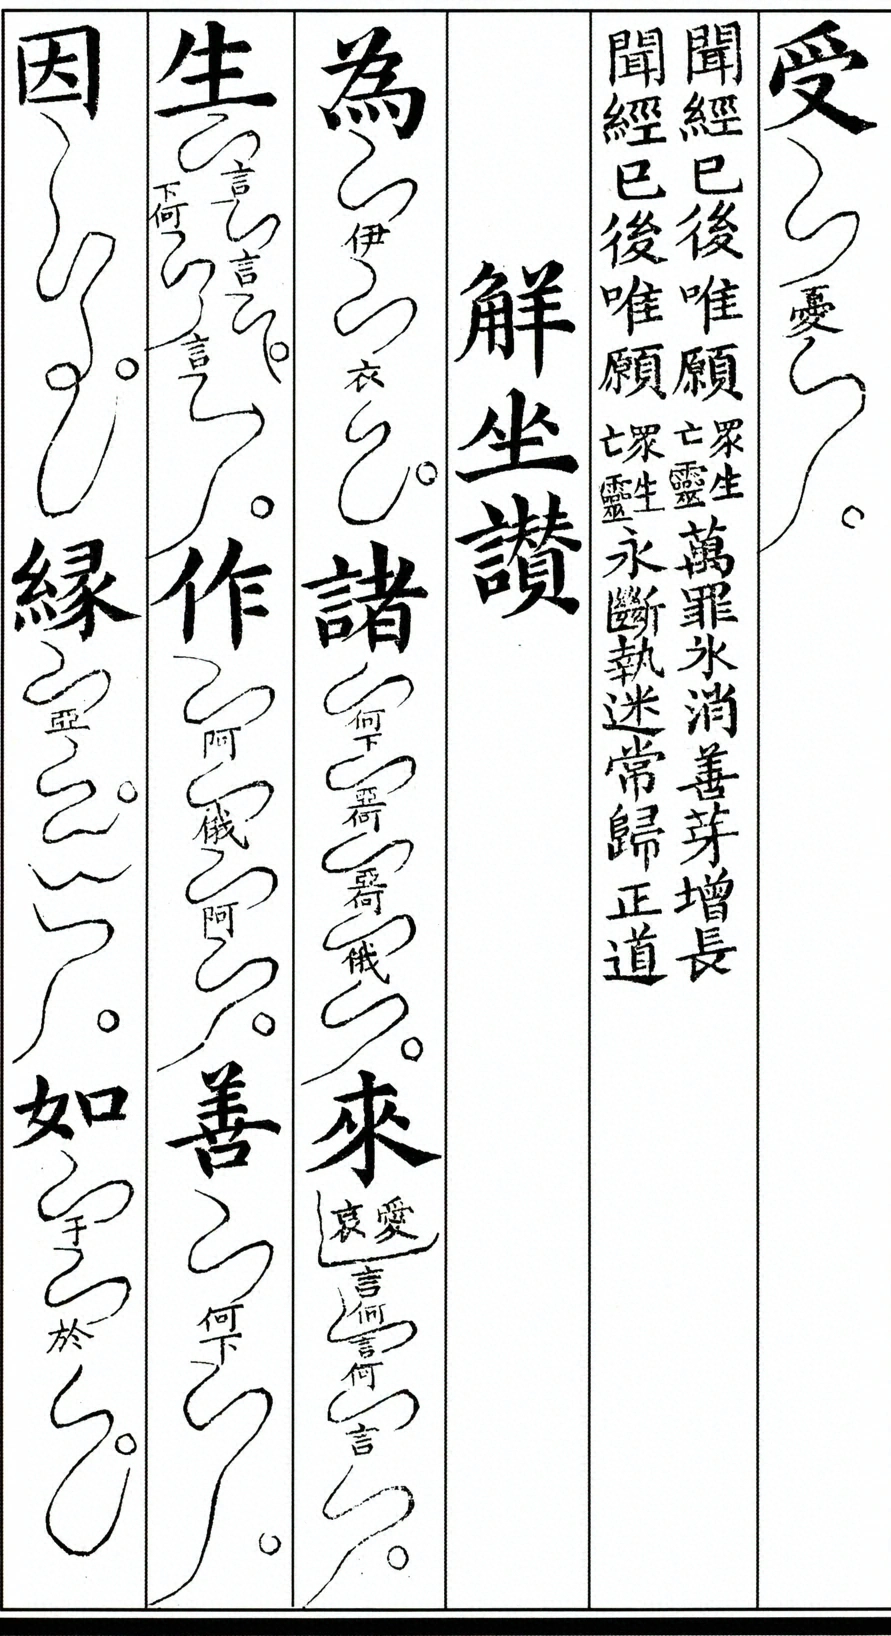 受憂
聞經已後唯願眾生亡靈萬罪氷消善芽增長
聞經已後唯願眾生亡靈永斷執迷常歸正道
觧坐讃
為伊衣諸何下亞何亞何俄來愛哀言何言何言
生言下何言言作阿俄阿善何下
因縁亞如于於